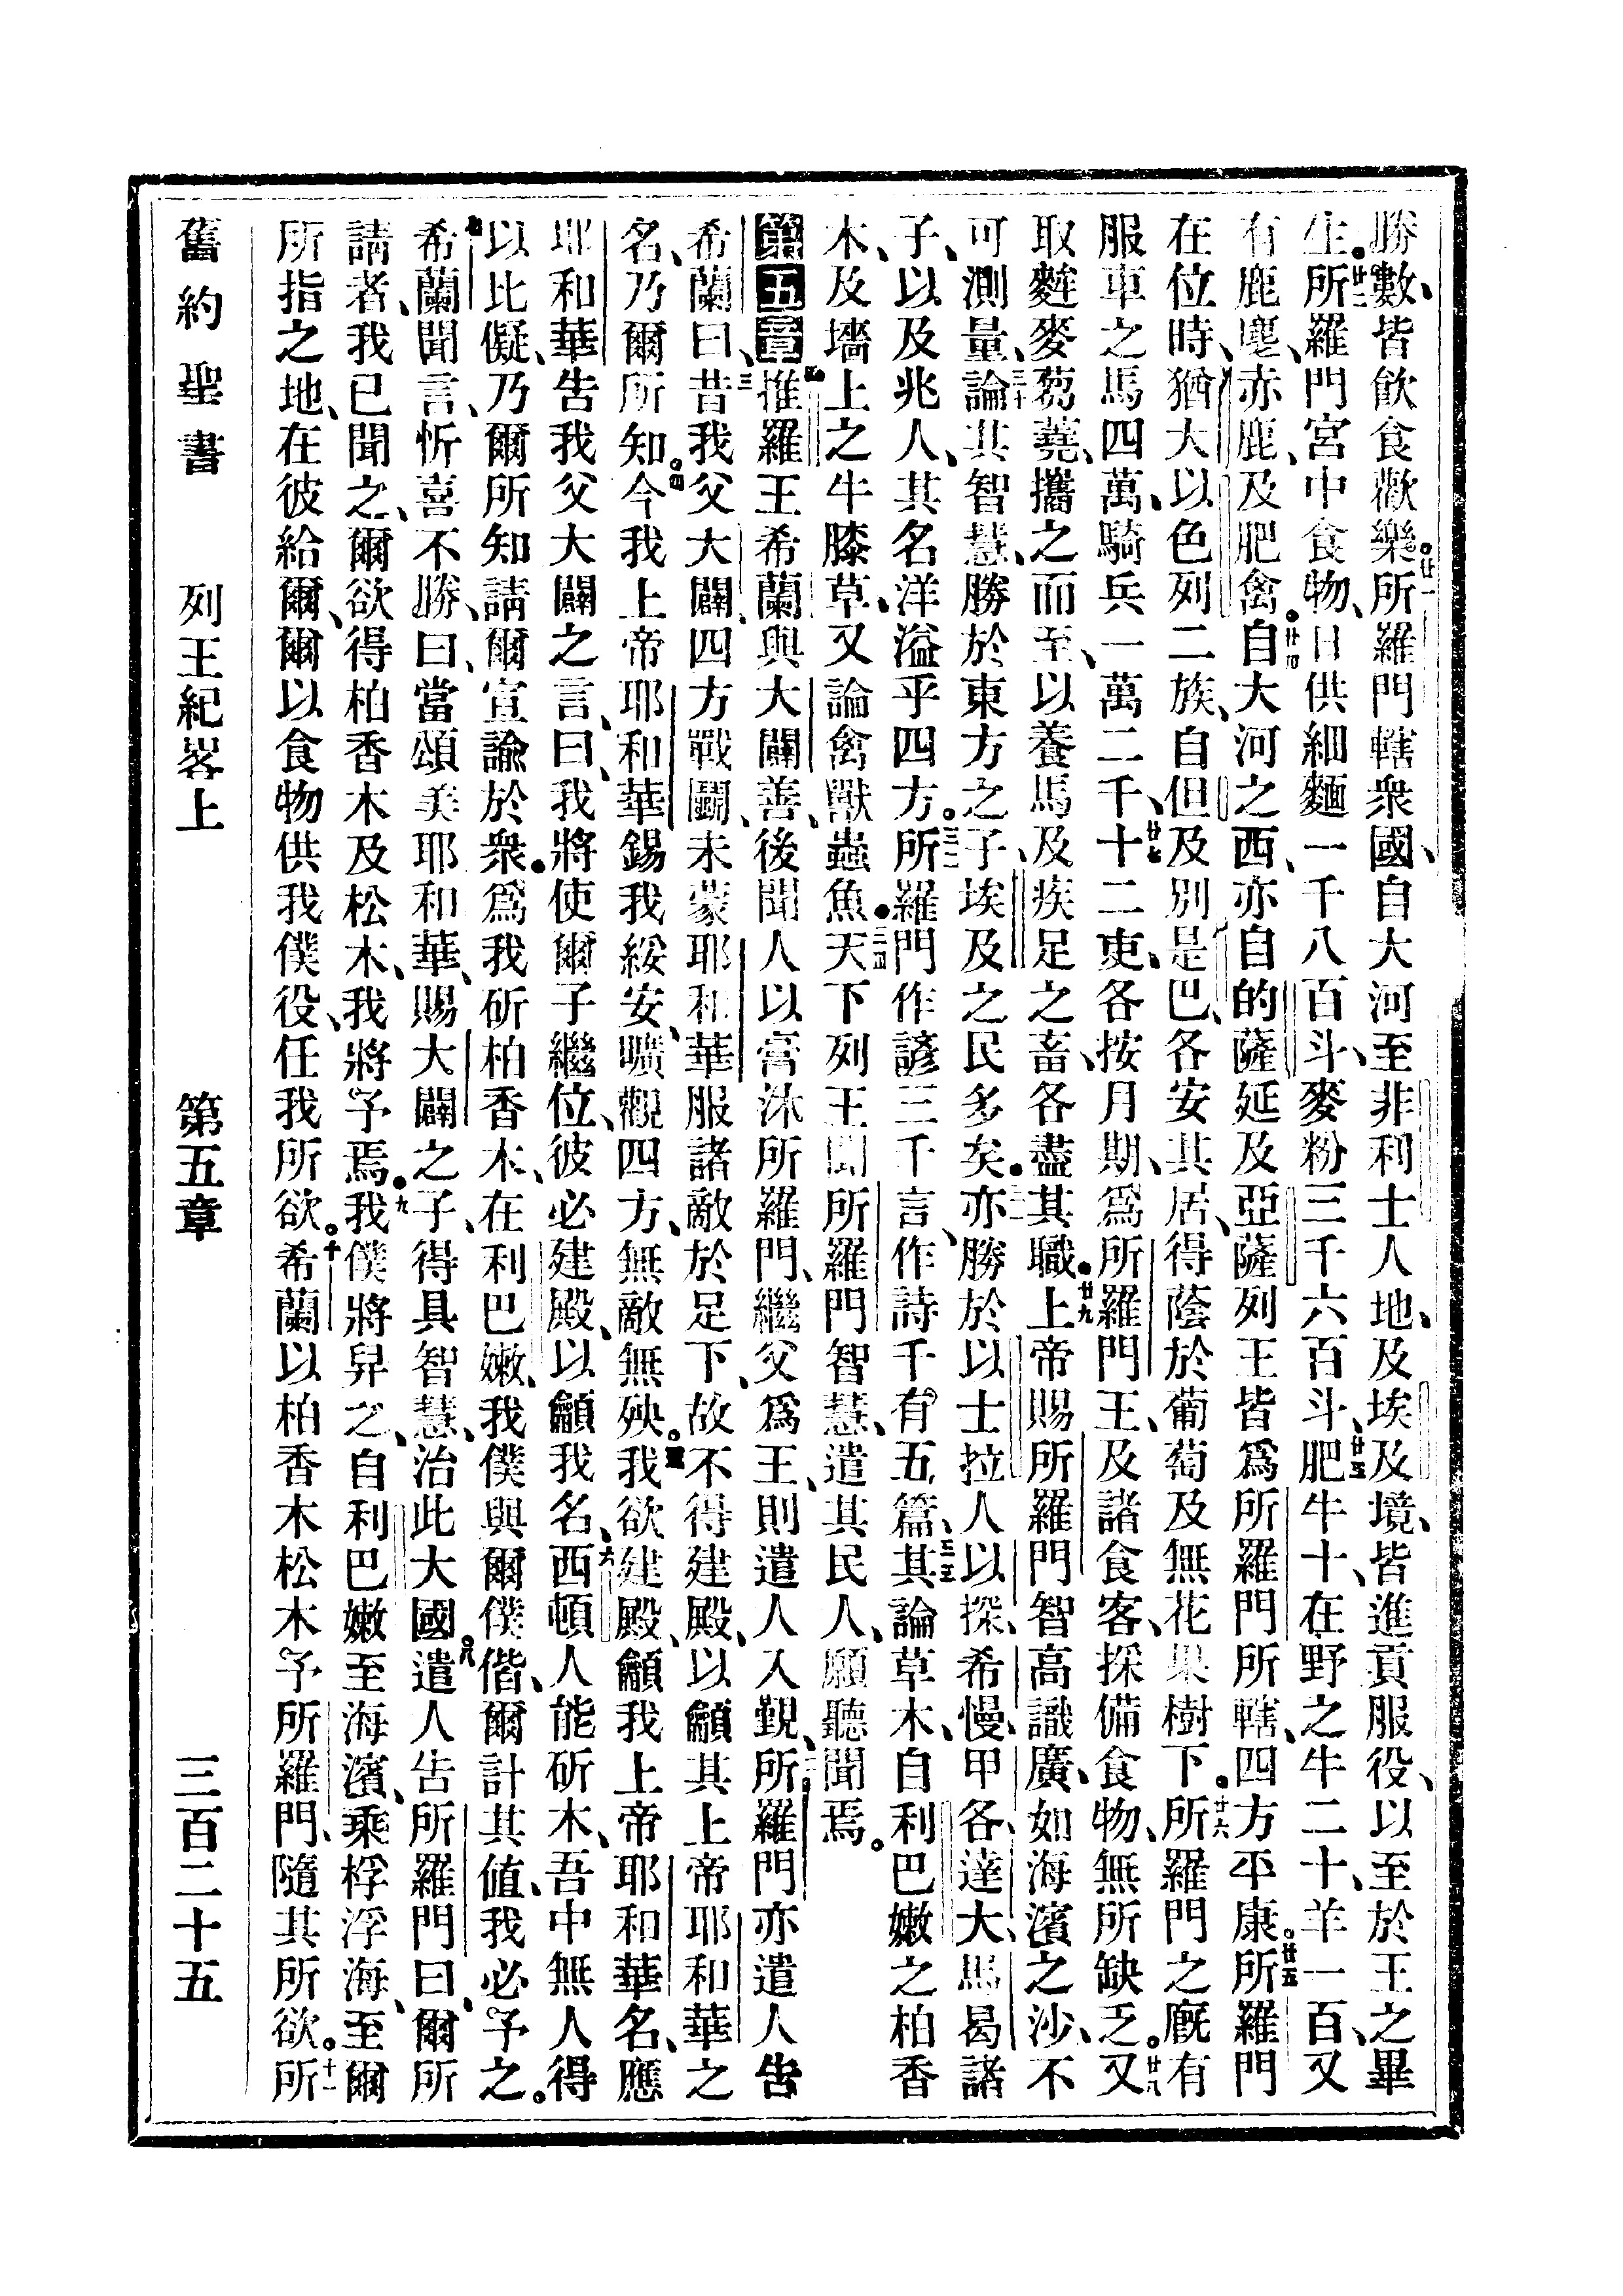 勝數、皆飲食歡樂。廿一所羅門轄衆國、自大河至非利士人地、及埃及境、皆進貢服役、以至於王之畢
生。廿二所羅門宮中食物、日供細麵一千八百斗、麥粉三千六百斗、廿三肥牛十、在野之牛二十、羊一百、又
有鹿麈、赤鹿、及肥禽。廿四自大河之西、亦自的薩延及亞薩列王皆爲所羅門所轄、四方平康。廿五所羅門
在位時、猶大以色列二族、自但及別是巴、各安其居、得蔭於葡萄及無花果樹下。廿六所羅門之廐有
服車之馬四萬、騎兵一萬二千、廿七十二吏、各按月期、爲所羅門王、及諸食客、採備食物、無所缺乏。廿八又
取麰麥芻蕘、攜之而至、以養馬及疾足之畜、各盡其職。廿九上帝賜所羅門智高識廣、如海濱之沙、不
可測量、三十論其智慧、勝於東方之子、埃及之民多矣。三一亦勝於以士拉人以探、希慢、甲各、達大、馬曷諸
子、以及兆人、其名洋溢乎四方。三二所羅門作諺三千言、作詩千有五篇、三三其論草木、自利巴嫩之柏香
木、及墻上之牛膝草、又論禽獸、蟲魚。三四天下列王聞所羅門智慧、遣其民人、願聽聞焉。
第五章推羅王希蘭與大闢善、後聞人以膏沐所羅門、繼父爲王、則遣人入覲、二所羅門亦遣人告
希蘭曰、三昔我父大闢、四方戰鬬、未蒙耶和華服諸敵於足下、故不得建殿、以籲其上帝耶和華之
名、乃爾所知。四今我上帝耶和華錫我綏安、曠觀四方、無敵無殃。五我欲建殿、籲我上帝耶和華名、應
耶和華告我父大闢之言、曰、我將使爾子繼位、彼必建殿、以籲我名、六西頓人能斫木、吾中無人得
以比儗、乃爾所知、請爾宣諭於衆。爲我斫柏香木、在利巴嫩、我僕與爾僕偕、爾計其值、我必予之。
七希蘭聞言、忻喜不勝、曰、當頌美耶和華、賜大闢之子、得具智慧、治此大國。八遣人告所羅門曰、爾所
請者、我已聞之、爾欲得柏香木及松木、我將予焉。九我僕將舁之、自利巴嫩至海濱、乘桴浮海、至爾
所指之地、在彼給爾、爾以食物供我僕役、任我所欲。十希蘭以柏香木松木予所羅門、隨其所欲。十一所
舊約聖書　列王紀畧上　第五章　三百二十五